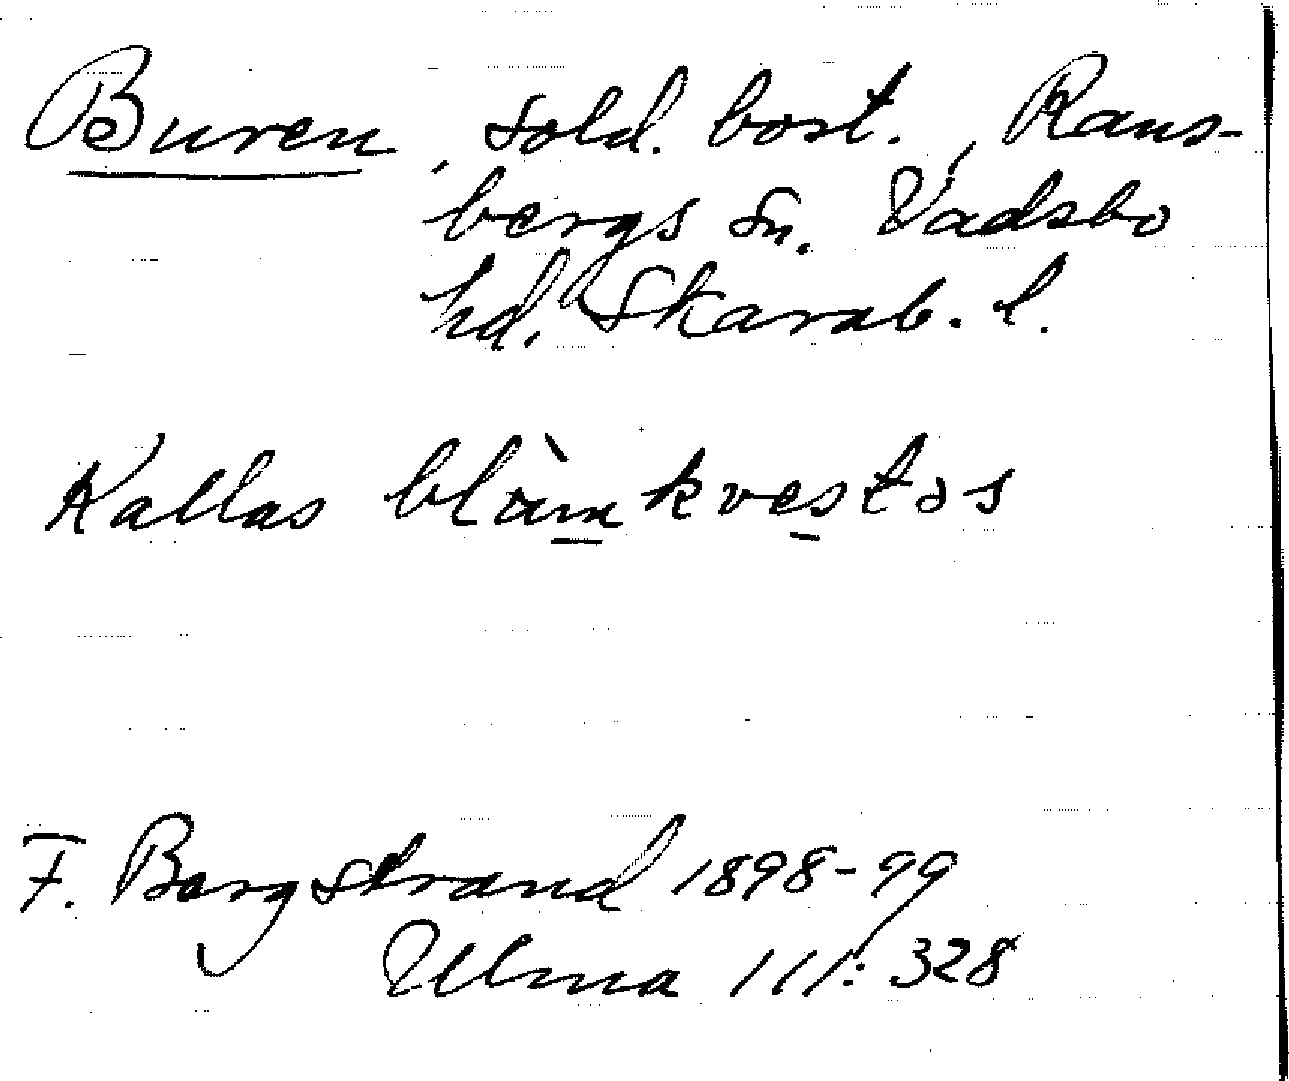 Buren, sold. bost., Rans-
bergs sn. Vadsbo
hd. Skarab. l.
Kallas blàmkvestəs
F. Bergstrand 1898-99
Ulma 111:328